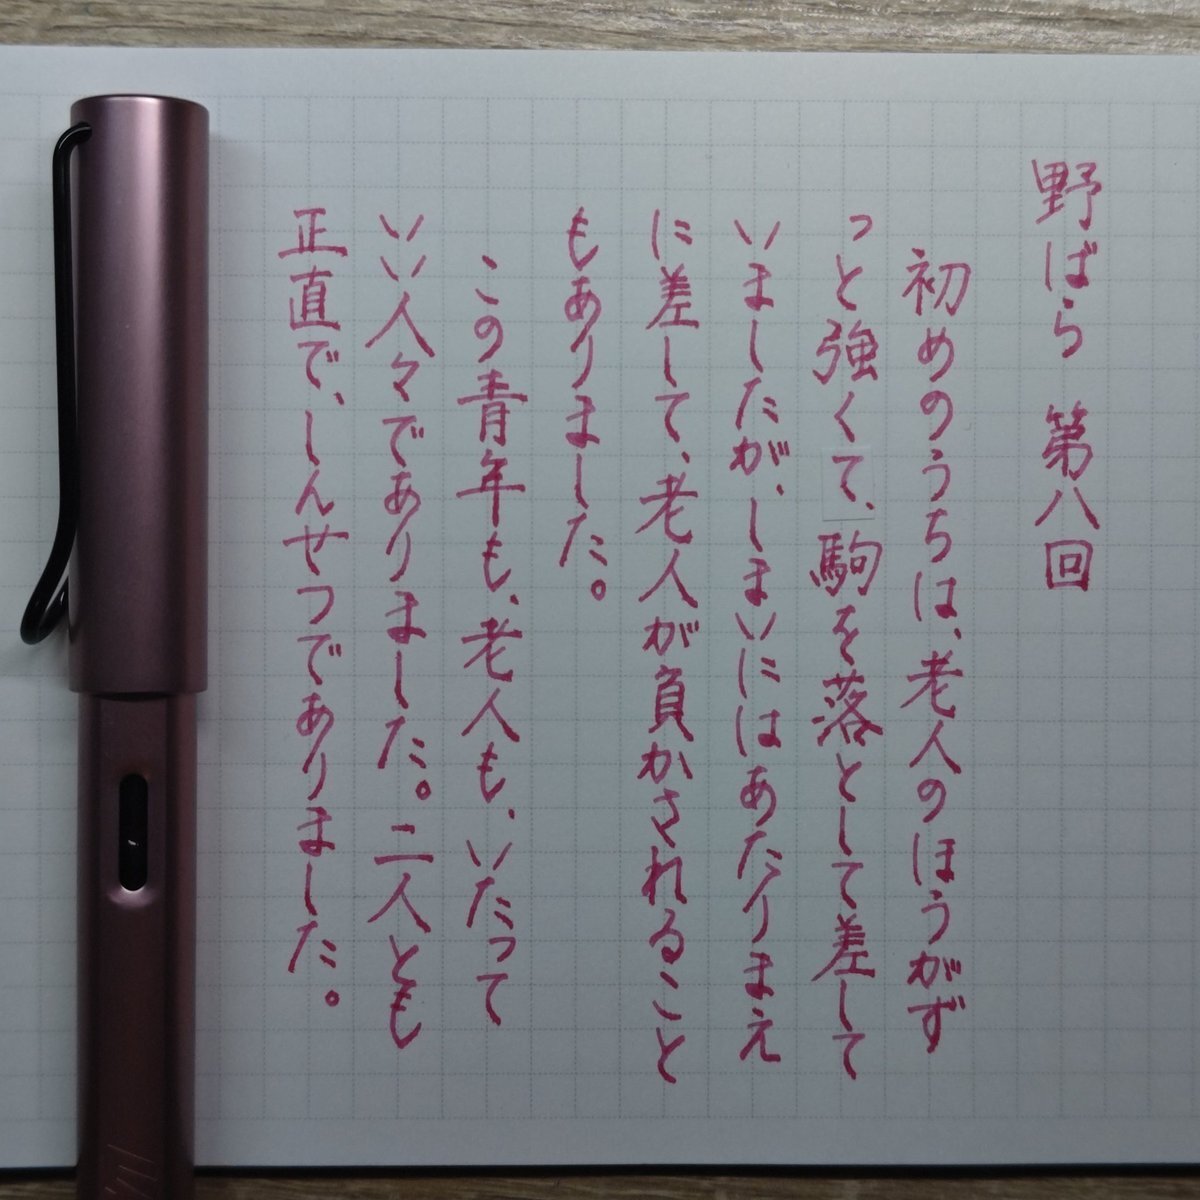 野ばら　第八回
初めのうちは、老人のほうがず
っと強くて、駒を落として差して
いましたが、しまいにはあたりまえ
に差して、老人が負かされること
もありました。
この青年も、老人も、いたって
いい人々でありました。二人とも
正直で、しんせつでありました。